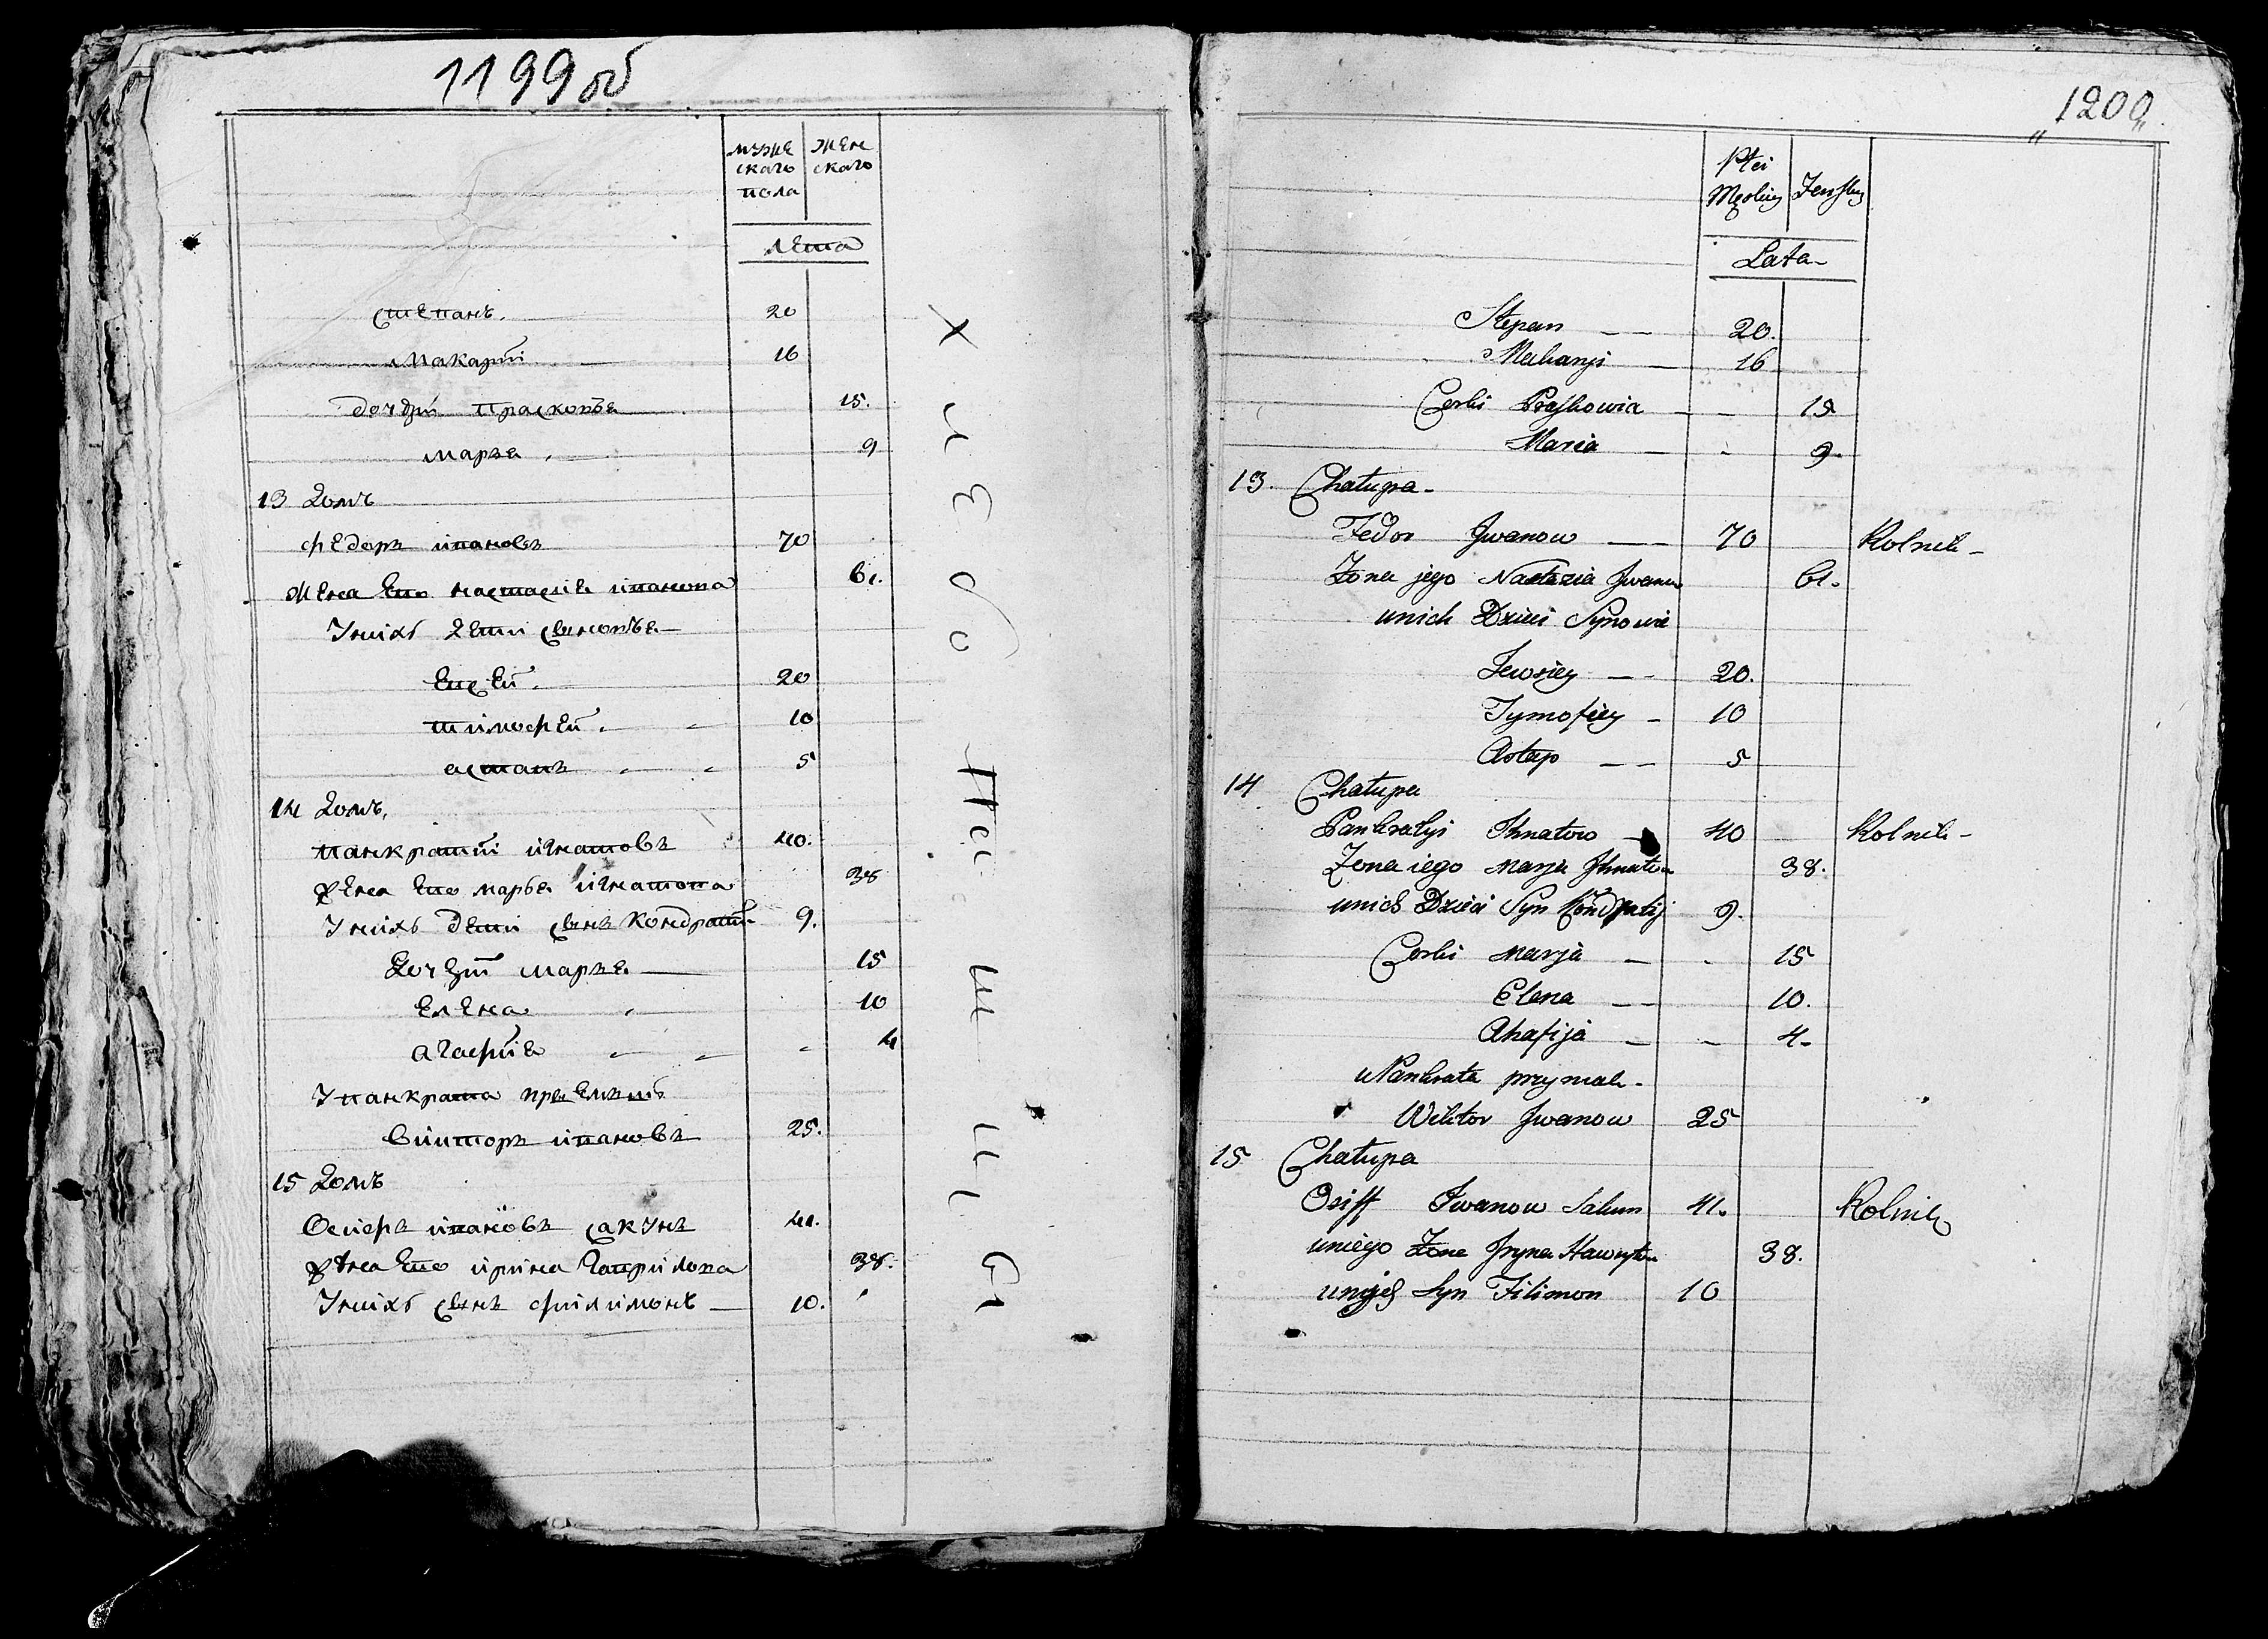 1199об
мужескаго пола
женскаго
лета
степанъ. 20
макарiй 16
дочери прасковѣя 15.
марья 9
13 домъ
федоръ ивановъ 70
жена Его настасiя иванова 61.
У нихъ дети сыновѣя
Евсей. 20
тимофей. 10
астапъ 5
14 домъ.
панкратiй игнатовъ 40.
жена Его марья игнатова 38
У нихъ дети сынъ кондратiй 9.
дочери марья 15
Елена 10
агафия 4
У панкрата
викторъ ивановъ 25.
15 домъ
Осифъ ивановъ сакунъ 41.
жена Его ирина гаврилова 38.
У нихъ сынъ филимонъ 10.
Хлебопашцы
1200
Płci
Męskiey
Zenskiey
Lata
Stepan 20.
Makaryi 16
Corki Praskowia 15
Maria 9
13. Chałupa
Fedor Iwanow 70 Rolnik
Zona jego Nastazia Iwanow 61.
u nich Dzieci Synowie
Jewsiey 20.
Tymofiey 10
Astap 5
14 Chałupa
Pankratyi Ihnatow 40 Rolnik
Zona iego Marja Ihnatow 38.
u nich Dzieci Syn Kondratij 9.
Corki Marja 15
Elena 10.
Ahafija 4
u Pankrata przymak
Wiktor Iwanow 25
15 Chałupa
Osiff Iwanow Sakun 41. Rolnik
u niego Zona Iryna Hawryłow 38.
u nich Syn Filimon 10